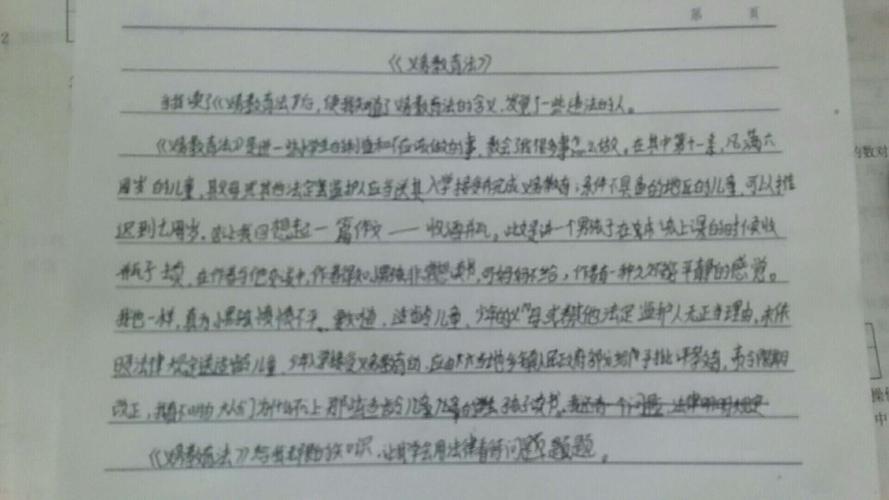 第 页
《义务教育法》
当我读了《义务教育法》后，使我知道了义务教育法的含义，发觉了一些违法的人。
《义务教育法》是讲一些小学生的制度和不应该做的事，教会了我很多事怎么做。在其中第十一条，凡满六
周岁的儿童，其父母或其他法定监护人应当送其入学接受并完成义务教育；条件不具备的地区的儿童，可以推
迟到七周岁。这让我回想起一篇作文——收酒瓶，此文是讲一个男孩子在本该上课的时候收
瓶子卖，在作者与他交谈中，作者得知小男孩非常想读书，可妈妈不给，作者有一种久久不能平静的感觉。
我也一样，真为小男孩愤愤不平，适龄儿童、少年的父母或其他法定监护人无正当理由，未依
照法律规定送适龄儿童、少年入学接受义务教育的，由当地乡镇人民政府给予批评教育，责令限期
改正，我真不明白大人们为什么不让那些适龄儿童孩子读书。我还有一个问题，法律明明规定
《义务教育法》给我知识，让我学会用法律看待问题。